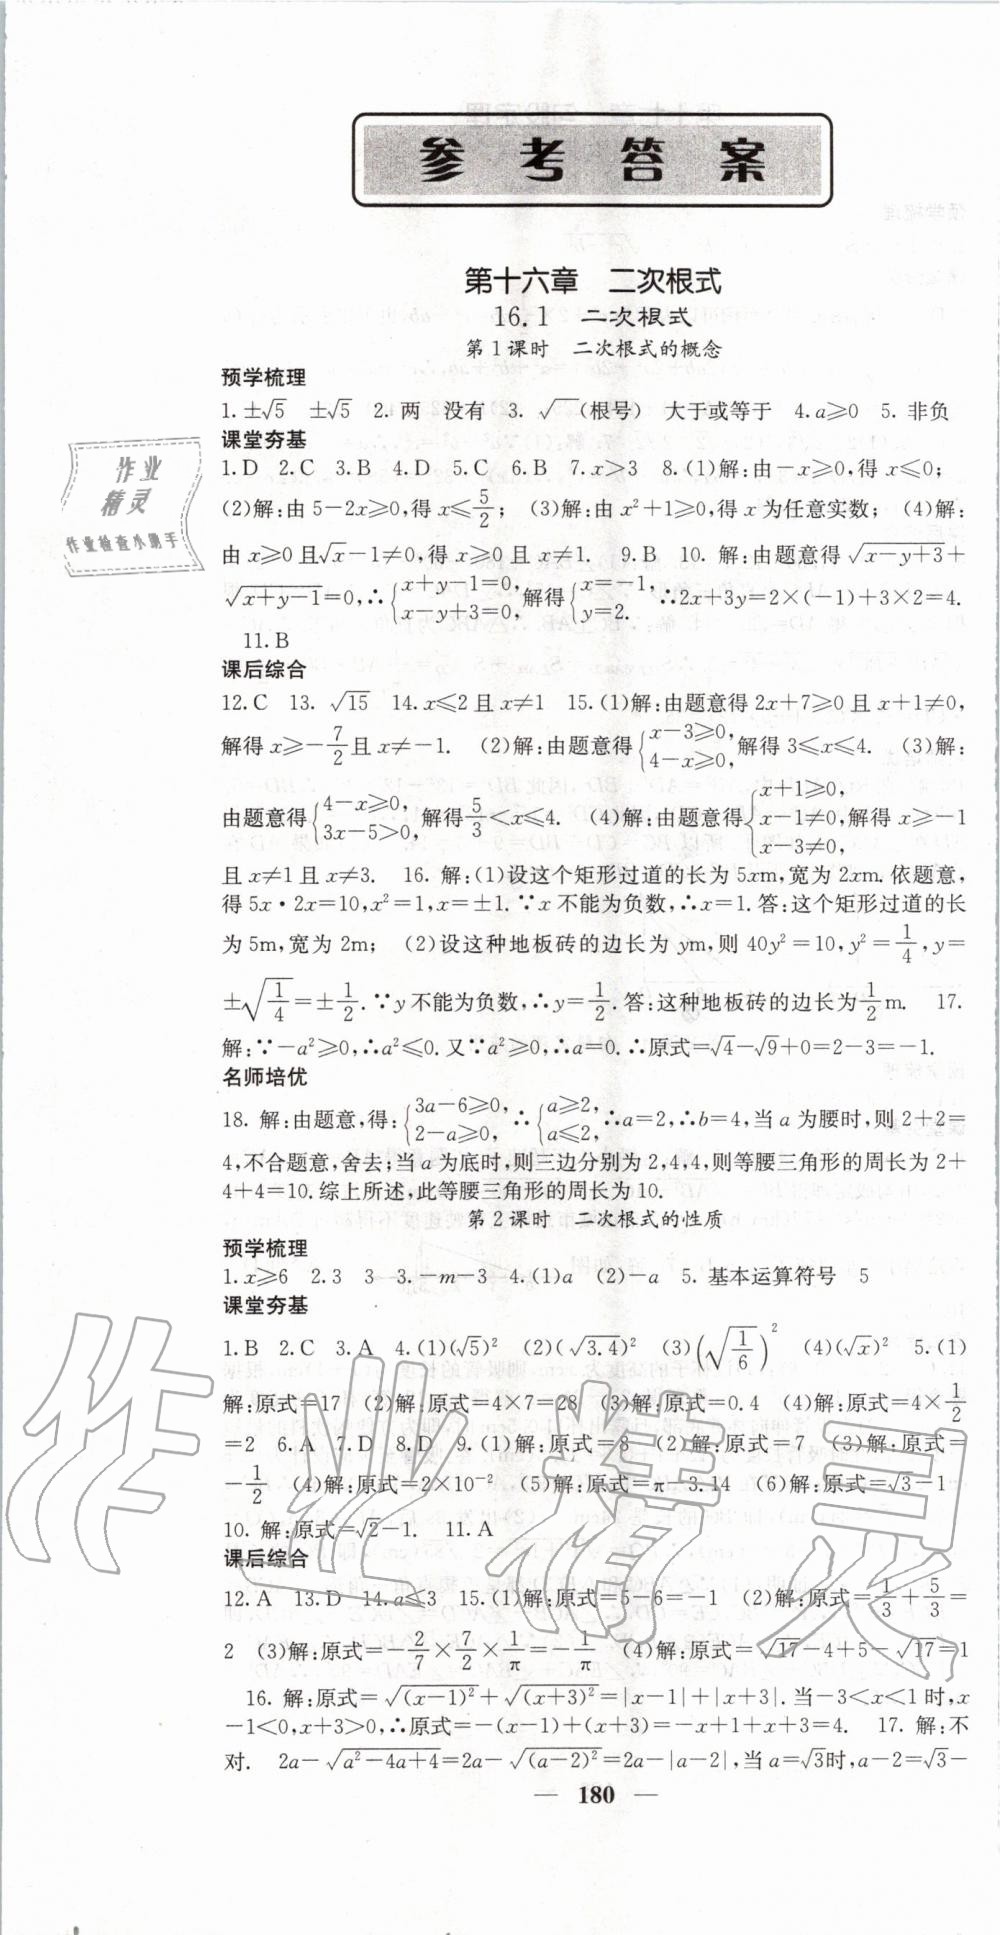 参考答案
第十六章　二次根式
16.1　二次根式
第1课时　二次根式的概念
预学梳理
1.±√5　±√5　2.两　没有　3.√‾(根号)　大于或等于　4.a≥0　5.非负
课堂夯基
1.D　2.C　3.B　4.D　5.C　6.B　7.x>3　8.(1)解:由-x≥0,得x≤0;
(2)解:由5-2x≥0,得x≤5/2;　(3)解:由x²+1≥0,得x为任意实数;　(4)解:
由x≥0且√x-1≠0,得x≥0且x≠1.　9.B　10.解:由题意得√(x-y+3)+
√(x+y-1)=0,∴{x+y-1=0, x-y+3=0, 解得{x=-1, y=2. ∴2x+3y=2×(-1)+3×2=4.
11.B
课后综合
12.C　13.√15　14.x≤2且x≠1　15.(1)解:由题意得2x+7≥0且x+1≠0,
解得x≥-7/2且x≠-1.　(2)解:由题意得{x-3≥0, 4-x≥0, 解得3≤x≤4.　(3)解:
由题意得{4-x≥0, 3x-5>0, 解得5/3<x≤4.　(4)解:由题意得{x+1≥0, x-1≠0, x-3≠0, 解得x≥-1
且x≠1且x≠3.　16.解:(1)设这个矩形过道的长为5xm,宽为2xm.依题意,
得5x·2x=10,x²=1,x=±1.∵x不能为负数,∴x=1.答:这个矩形过道的长
为5m,宽为2m;　(2)设这种地板砖的边长为ym,则40y²=10,y²=1/4,y=
±√(1/4)=±1/2.∵y不能为负数,∴y=1/2.答:这种地板砖的边长为1/2m.　17.
解:∵-a²≥0,∴a²≤0.又∵a²≥0,∴a=0.∴原式=√4-√9+0=2-3=-1.
名师培优
18.解:由题意,得:{3a-6≥0, 2-a≥0, ∴{a≥2, a≤2, ∴a=2,∴b=4,当a为腰时,则2+2=
4,不合题意,舍去;当a为底时,则三边分别为2,4,4,则等腰三角形的周长为2+
4+4=10.综上所述,此等腰三角形的周长为10.
第2课时　二次根式的性质
预学梳理
1.x≥6　2.3　3　3.-m-3　4.(1)a　(2)-a　5.基本运算符号　5
课堂夯基
1.B　2.C　3.A　4.(1)(√5)²　(2)(√3.4)²　(3)(√(1/6))²　(4)(√x)²　5.(1)
解:原式=17　(2)解:原式=4×7=28　(3)解:原式=0.4　(4)解:原式=4×1/2
=2　6.A　7.D　8.D　9.(1)解:原式=8　(2)解:原式=7　(3)解:原式=
-1/2　(4)解:原式=2×10⁻²　(5)解:原式=π-3.14　(6)解:原式=√3-1
10.解:原式=√2-1.　11.A
课后综合
12.A　13.D　14.a≤3　15.(1)解:原式=5-6=-1　(2)解:原式=1/3+5/3=
2　(3)解:原式=-2/7×7/2×1/π=-1/π　(4)解:原式=√17-4+5-√17=1
16.解:原式=√(x-1)²+√(x+3)²=|x-1|+|x+3|.当-3<x<1时,x
-1<0,x+3>0,∴原式=-(x-1)+(x+3)=-x+1+x+3=4.　17.解:不
对.　2a-√(a²-4a+4)=2a-√(a-2)²=2a-|a-2|,当a=√3时,a-2=√3-
— 180 —
作业
精灵
作业检查小助手
作业精灵